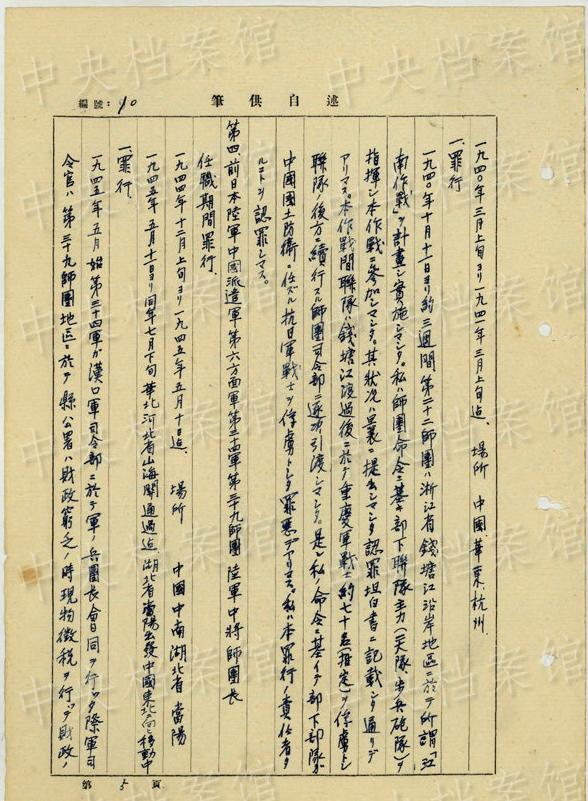 編號:10
述自供筆
一九四〇年三月上旬ヨリ一九四一年三月上旬迄、場所 中國華東杭州、
一、罪行
一九四〇年十月十一日ヨリ約三週間第二十二師團ハ浙江省錢塘江沿岸地區ニ於テ所謂「江
南作戰」ヲ計畫シ實施シマシタ。私ハ師團命令ニ基キ部下聯隊主力(一大隊、步兵砲隊)ヲ
指揮シ本作戰ニ參加シマシタ。其狀況ハ曩ニ提出シマシタ認罪坦白書ニ記載シタ通リデ
アリマス。本作戰間聯隊ハ錢塘江渡過後ニ於テ重慶軍戰士約七十名(推定)ヲ俘虜トシ
聯隊ノ後方ニ續行スル師團司令部ニ逐次引渡シマシタ。是レ私ノ命令ニ基イテ部下部隊ガ
中國國土防衛ニ任ズル抗日軍戰士ヲ俘虜トシタ罪惡デアリマス。私ハ本罪行ノ責任者タ
ルコトヲ認罪シマス。
第四、前日本陸軍中國派遣軍第六方面軍第三十四軍第三十九師團 陸軍中將師團長
任職期間罪行、
一九四四年十二月上旬ヨリ一九四五年五月十日迄、場所 中國中南湖北省當陽
一九四五年五月十一日ヨリ同年七月下旬華北河北省山海關通過迄、湖北省當陽出發中國東北ニ向ヒ移動中
一、罪行、
一九四五年五月始第三十四軍ガ漢口軍司令部ニ於テ軍ノ兵團長會同ヲ行ッタ際軍司
令官ハ第三十九師團地區ニ於テ縣公署ハ財政窮乏ノ時現物徵稅ヲ行ッテ財政ノ
第 5 頁
中央档案馆